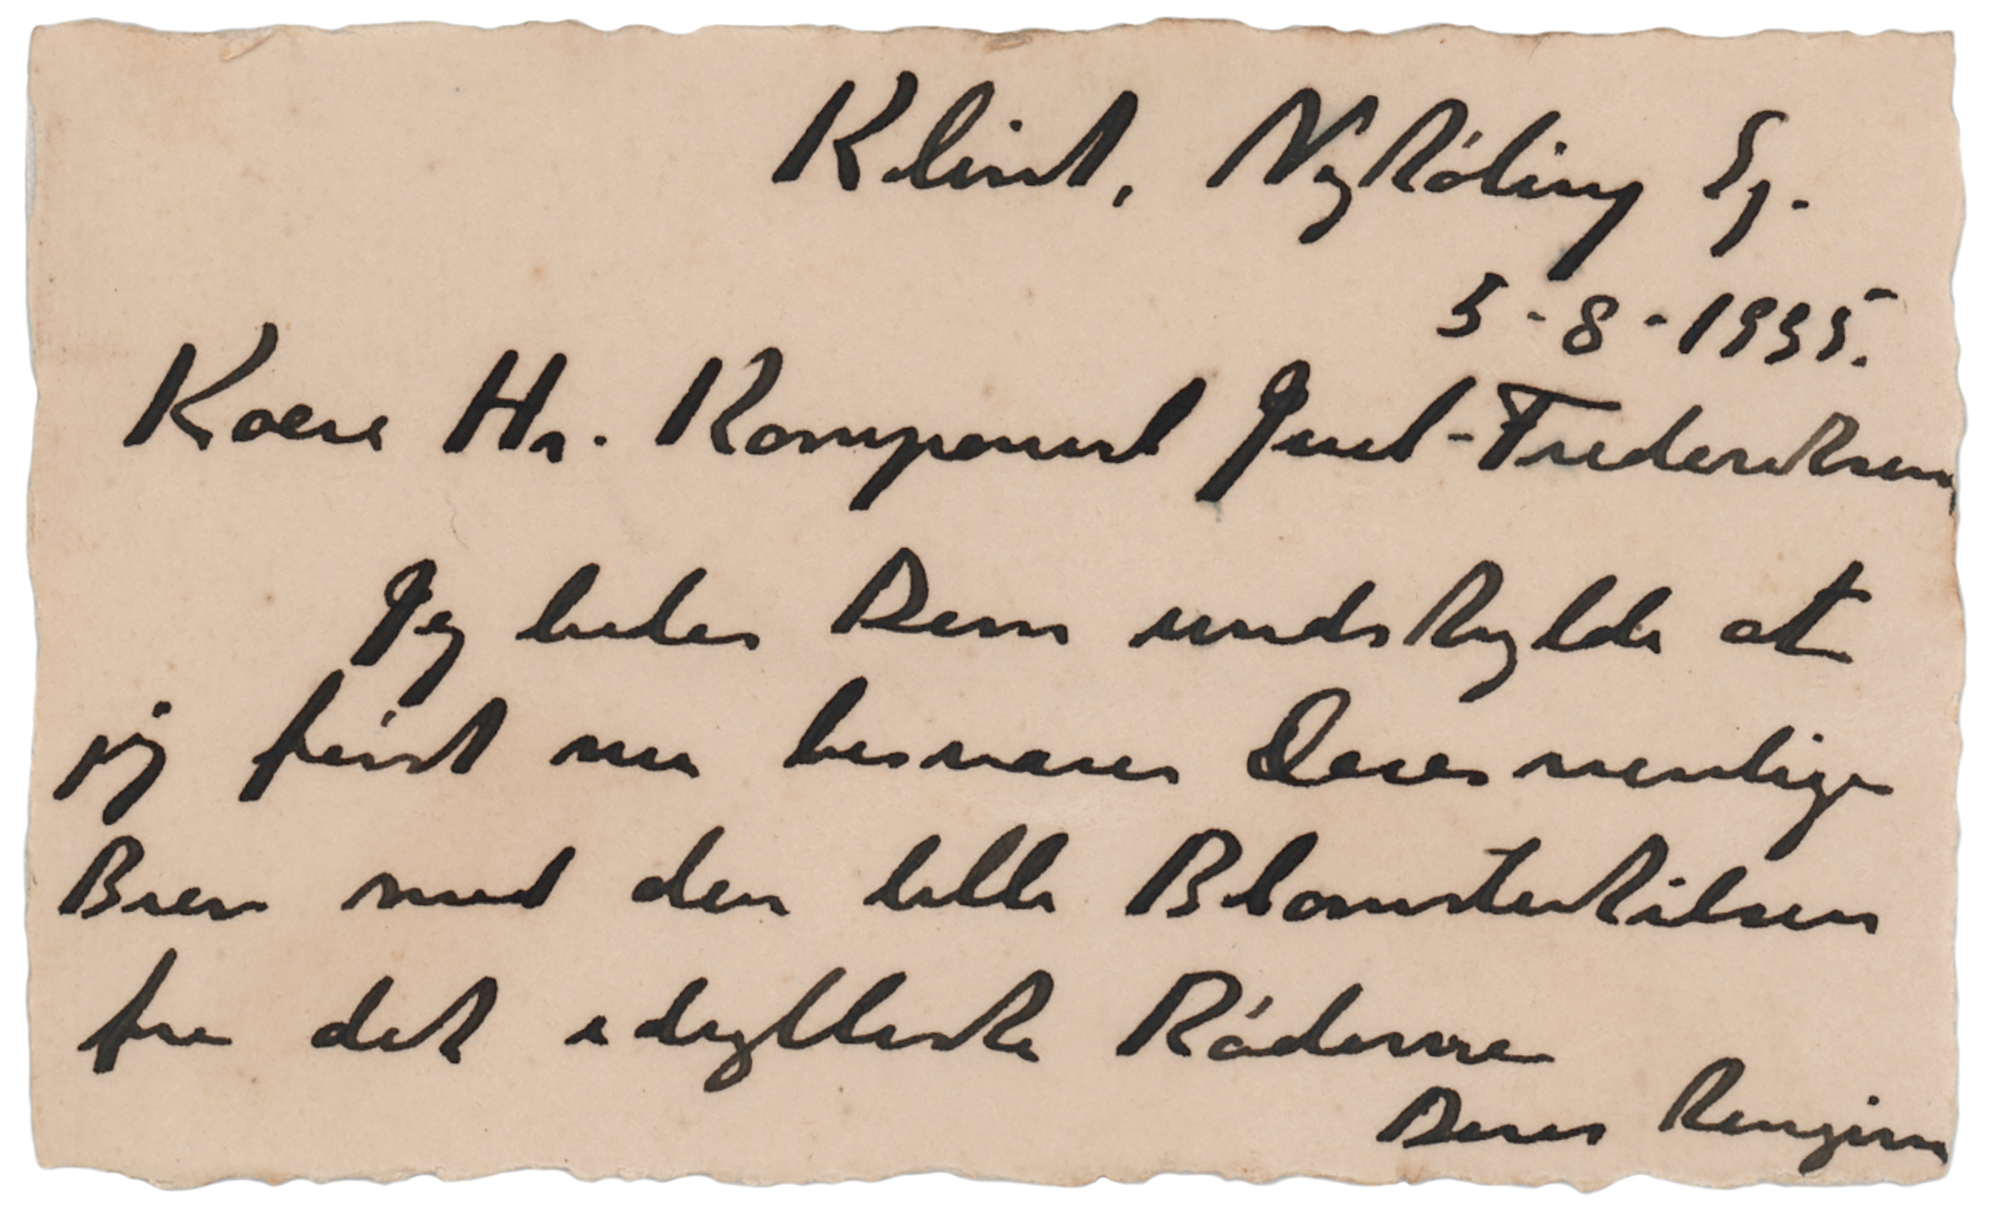 Klint, Nykøbing Sj.
5-8-1935.
Kære Hr. Komponist Juel-Frederiksen
Jeg beder Dem undskylde at
jeg först nu besvarer Deres venlige
Brev med den lille Blomsterhilsen
fra det idylliske
Deres